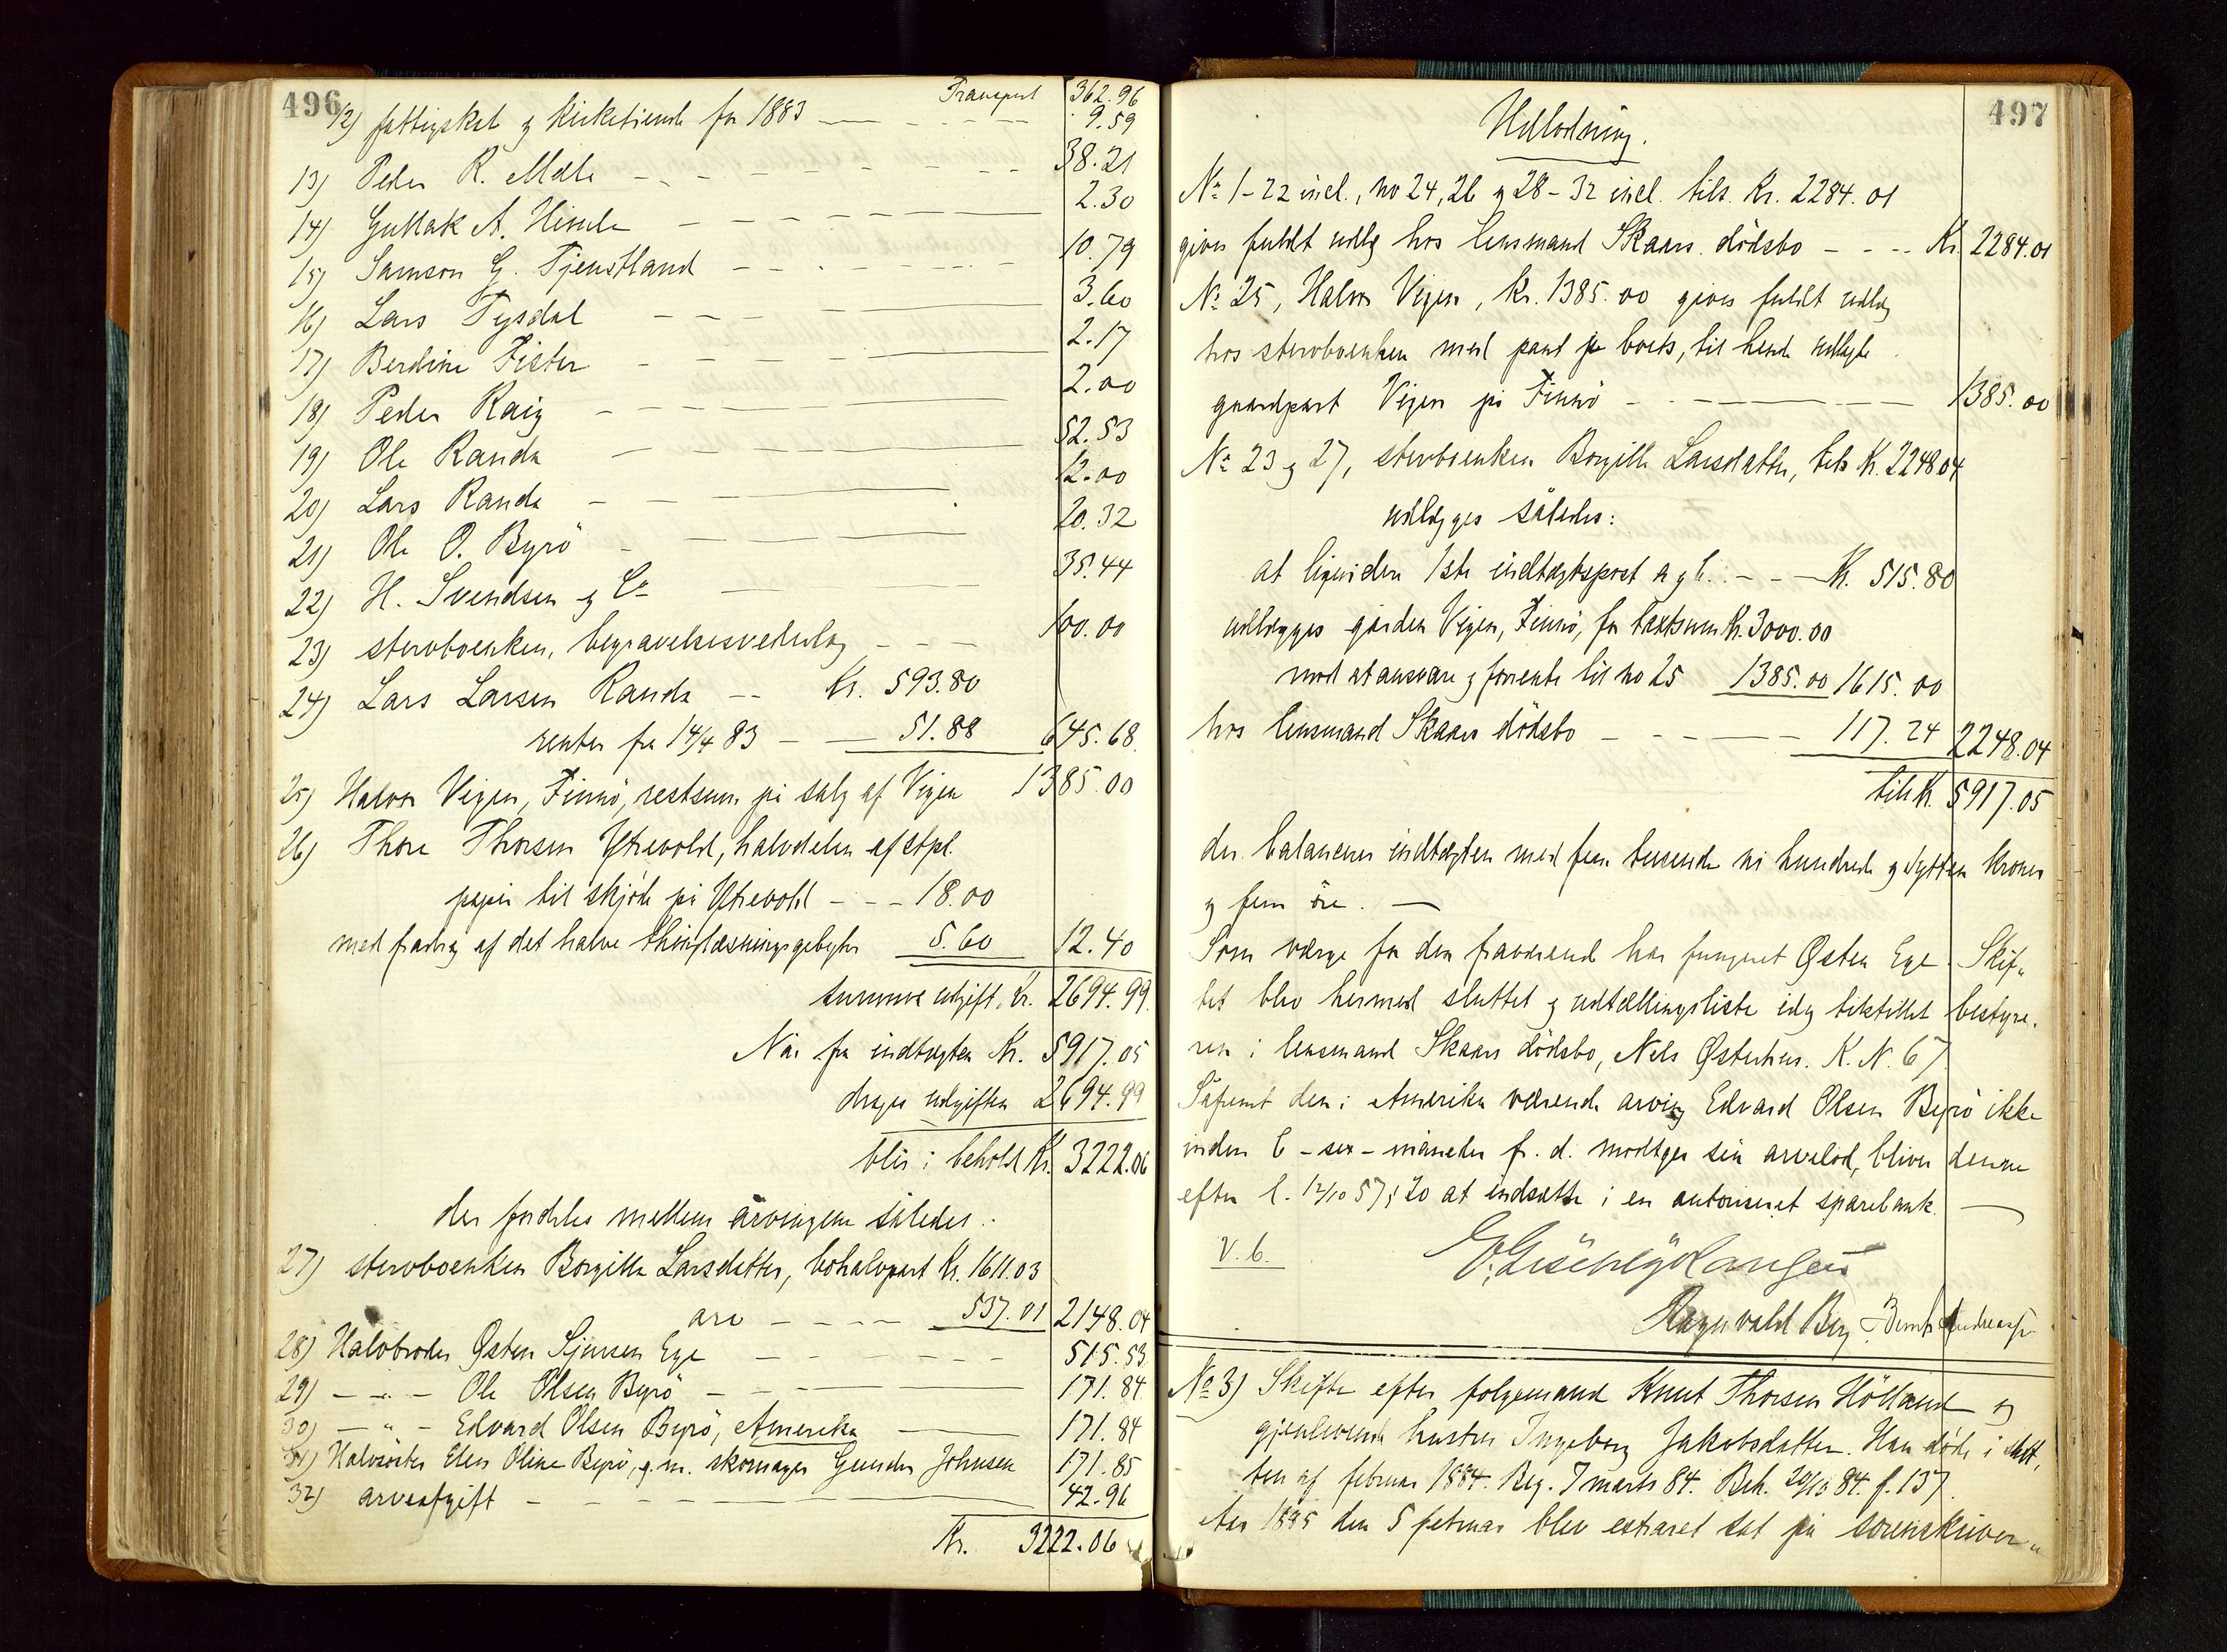 496
Transport 362.96
12) fattigskat og kirketiende for 1883 9.59
13) Peder R. Mæle 38.21
14) Guttak A. Hinde 2.30
15) Samson G. Tjenstland 10.79
16) Lars Tysdal 3.60
17) Berdine Fister 2.17
18) Peder Raig 2.00
19) Ole Randa 52.53
20) Lars Randa 12.00
21) Ole O. Byrö 20.32
22) H. Svendsen og Co 35.44
23) stervboenken, begravelsesvederlag 100.00
24) Lars Larsen Randa Kr. 593.80
renter fra 14/4 83 51.88 645.68
25) Halvor Vigen, Finnö, restsum på salg af Vigen 1385.00
26) Thore Thorsen Ytrevold, halvdelen af stpl.
papir til skjöde på Ytrevold 18.00
med fradrag af det halve thinglæsningsgebyhr 5.60 12.40
summa udgift, Kr. 2694.99
Når fra indtægten Kr. 5917.05
drages udgiften 2694.99
blir i behold Kr. 3222.06
der fordeles mellem arvingerne således:
27) stervboenken Borgilla Larsdatter, bohalvpart Kr. 1611.03
arv 537.01 2148.04
28) Halvbroder Østen Sjursen Ege 515.53
29) — " — Ole Olsen Byrö 171.84
30) — " — Edvard Olsen Byrö, Amerika 171.84
31) Halvsöster Elen Oline Byrö, g.m. skomager Gunder Johnsen 171.85
32) arveafgift 42.96
Kr. 3222.06
497
Udlodning.
No 1-22 incl., no 24, 26 og 28-32 incl. tils. Kr. 2284.01
gives fuldt udlæg hos lensmand Skaars dödsbo Kr. 2284.01
No 25, Halvor Vigen, Kr. 1385.00 gives fuldt udlæg
hos stervboenken med pant i boets, til hende udlagte
gaardpart Vigen på Finnö 1385.00
No 23 og 27, stervboenken Borgilla Larsdatter, tils Kr. 2248.04
udlægges således:
at liqvidere 1ste indtægtspost a og b. Kr. 515.80
udlægges gården Vigen, Finnö, for taxtsum Kr. 3000.00
mod at ansvare og forrente til no 25 1385.00 1615.00
hos lensmand Skaars dödsbo 117.24 2248.04
tils Kr. 5917.05
der balancerer indtægten med fem tusende ni hundrede og sytten Kroner
og fem öre. —
Som værge for den fraværende har fungeret Østen Ege. Skif„
tet blev hermed sluttet og udtællingsliste idag tilstillet bestyre„
ren i lensmand Skaars dödsbo, Nels Østerhus. K. N. 67
Såfremt den i Amerika værende arving Edvard Olsen Byrö ikke
inden 6 - sex - måneder fr. d. modtger sin arvelod, bliver denne
efter l. 12/10 57 § 20 at indsætte i en autoriseret sparebank.
V. b.
Ragnvald Berg Bernt Andreasen
No 3) Skifte efter folgemand Knut Thorsen Hölland og
gjenlevende hustru Ingeborg Jakobsdatter. Han döde i slut„
ten af februar 1884. Reg. 7 marts 84. Beh. 20/10 84. f. 137.
Aar 1885 den 5 februar blev extraret sat på sorenskriver„